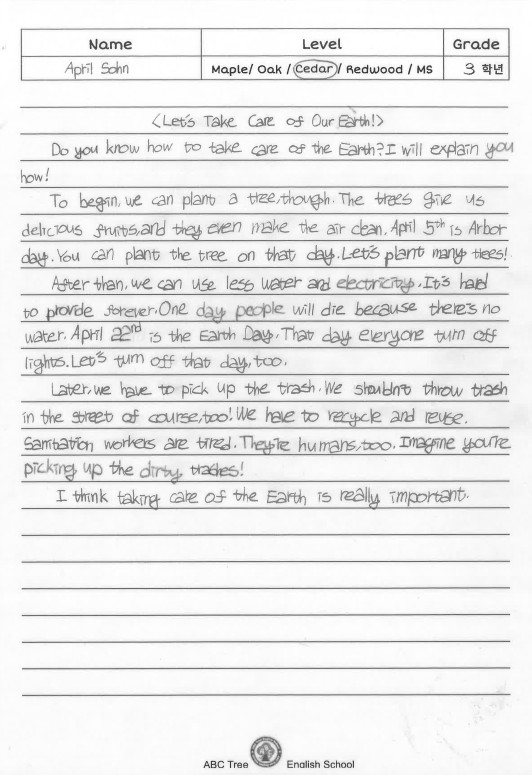 Name Level Grade
April Sohn Maple/ Oak / Cedar / Redwood / MS 3 학년
<Let's Take Care of Our Earth!>
Do you know how to take care of the Earth? I will explain you
how!
To begin, we can plant a tree, though. The trees give us
delicious fruits, and they even make the air clean. April 5th is Arbor
day. You can plant the tree on that day. Let's plant many trees!
After than, we can use less water and electricity. It's hard
to provide forever. One day people will die because there's no
water. April 22nd is the Earth Day. That day everyone turn off
lights. Let's turn off that day, too.
Later, we have to pick up the trash. We shouldn't throw trash
in the street of course, too! We have to recycle and reuse.
Sanitation workers are tired. They're humans, too. Imagine you're
picking up the dirty trashes!
I think taking care of the Earth is really important.
ABC Tree English School